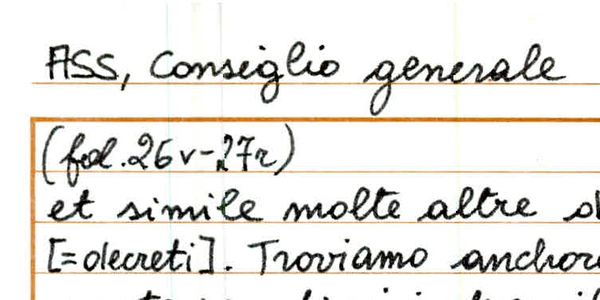 ASS, Consiglio generale
(fol. 26v-27r)
et simile molte altre
[=decreti]. Troviamo anchor